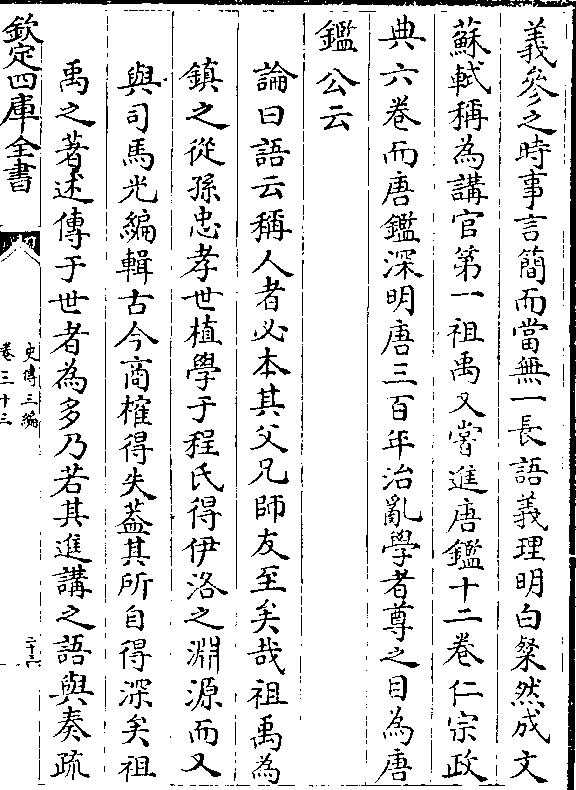 義參之時事言簡而當無一長語義理明白粲然成文
蘇軾稱為講官第一祖禹又嘗進唐鑑十二卷仁宗政
典六卷而唐鑑深明唐三百年治亂學者尊之目為唐
鑑公云
論曰語云稱人者必本其父兄師友至矣哉祖禹為
鎮之從孫忠孝世植學于程氏得伊洛之淵源而又
與司馬光編輯古今商榷得失蓋其所自得深矣祖
禹之著述傳于世者為多乃若其進講之語與奏疏
欽定四庫全書
史傳三編
卷三十三
二十六